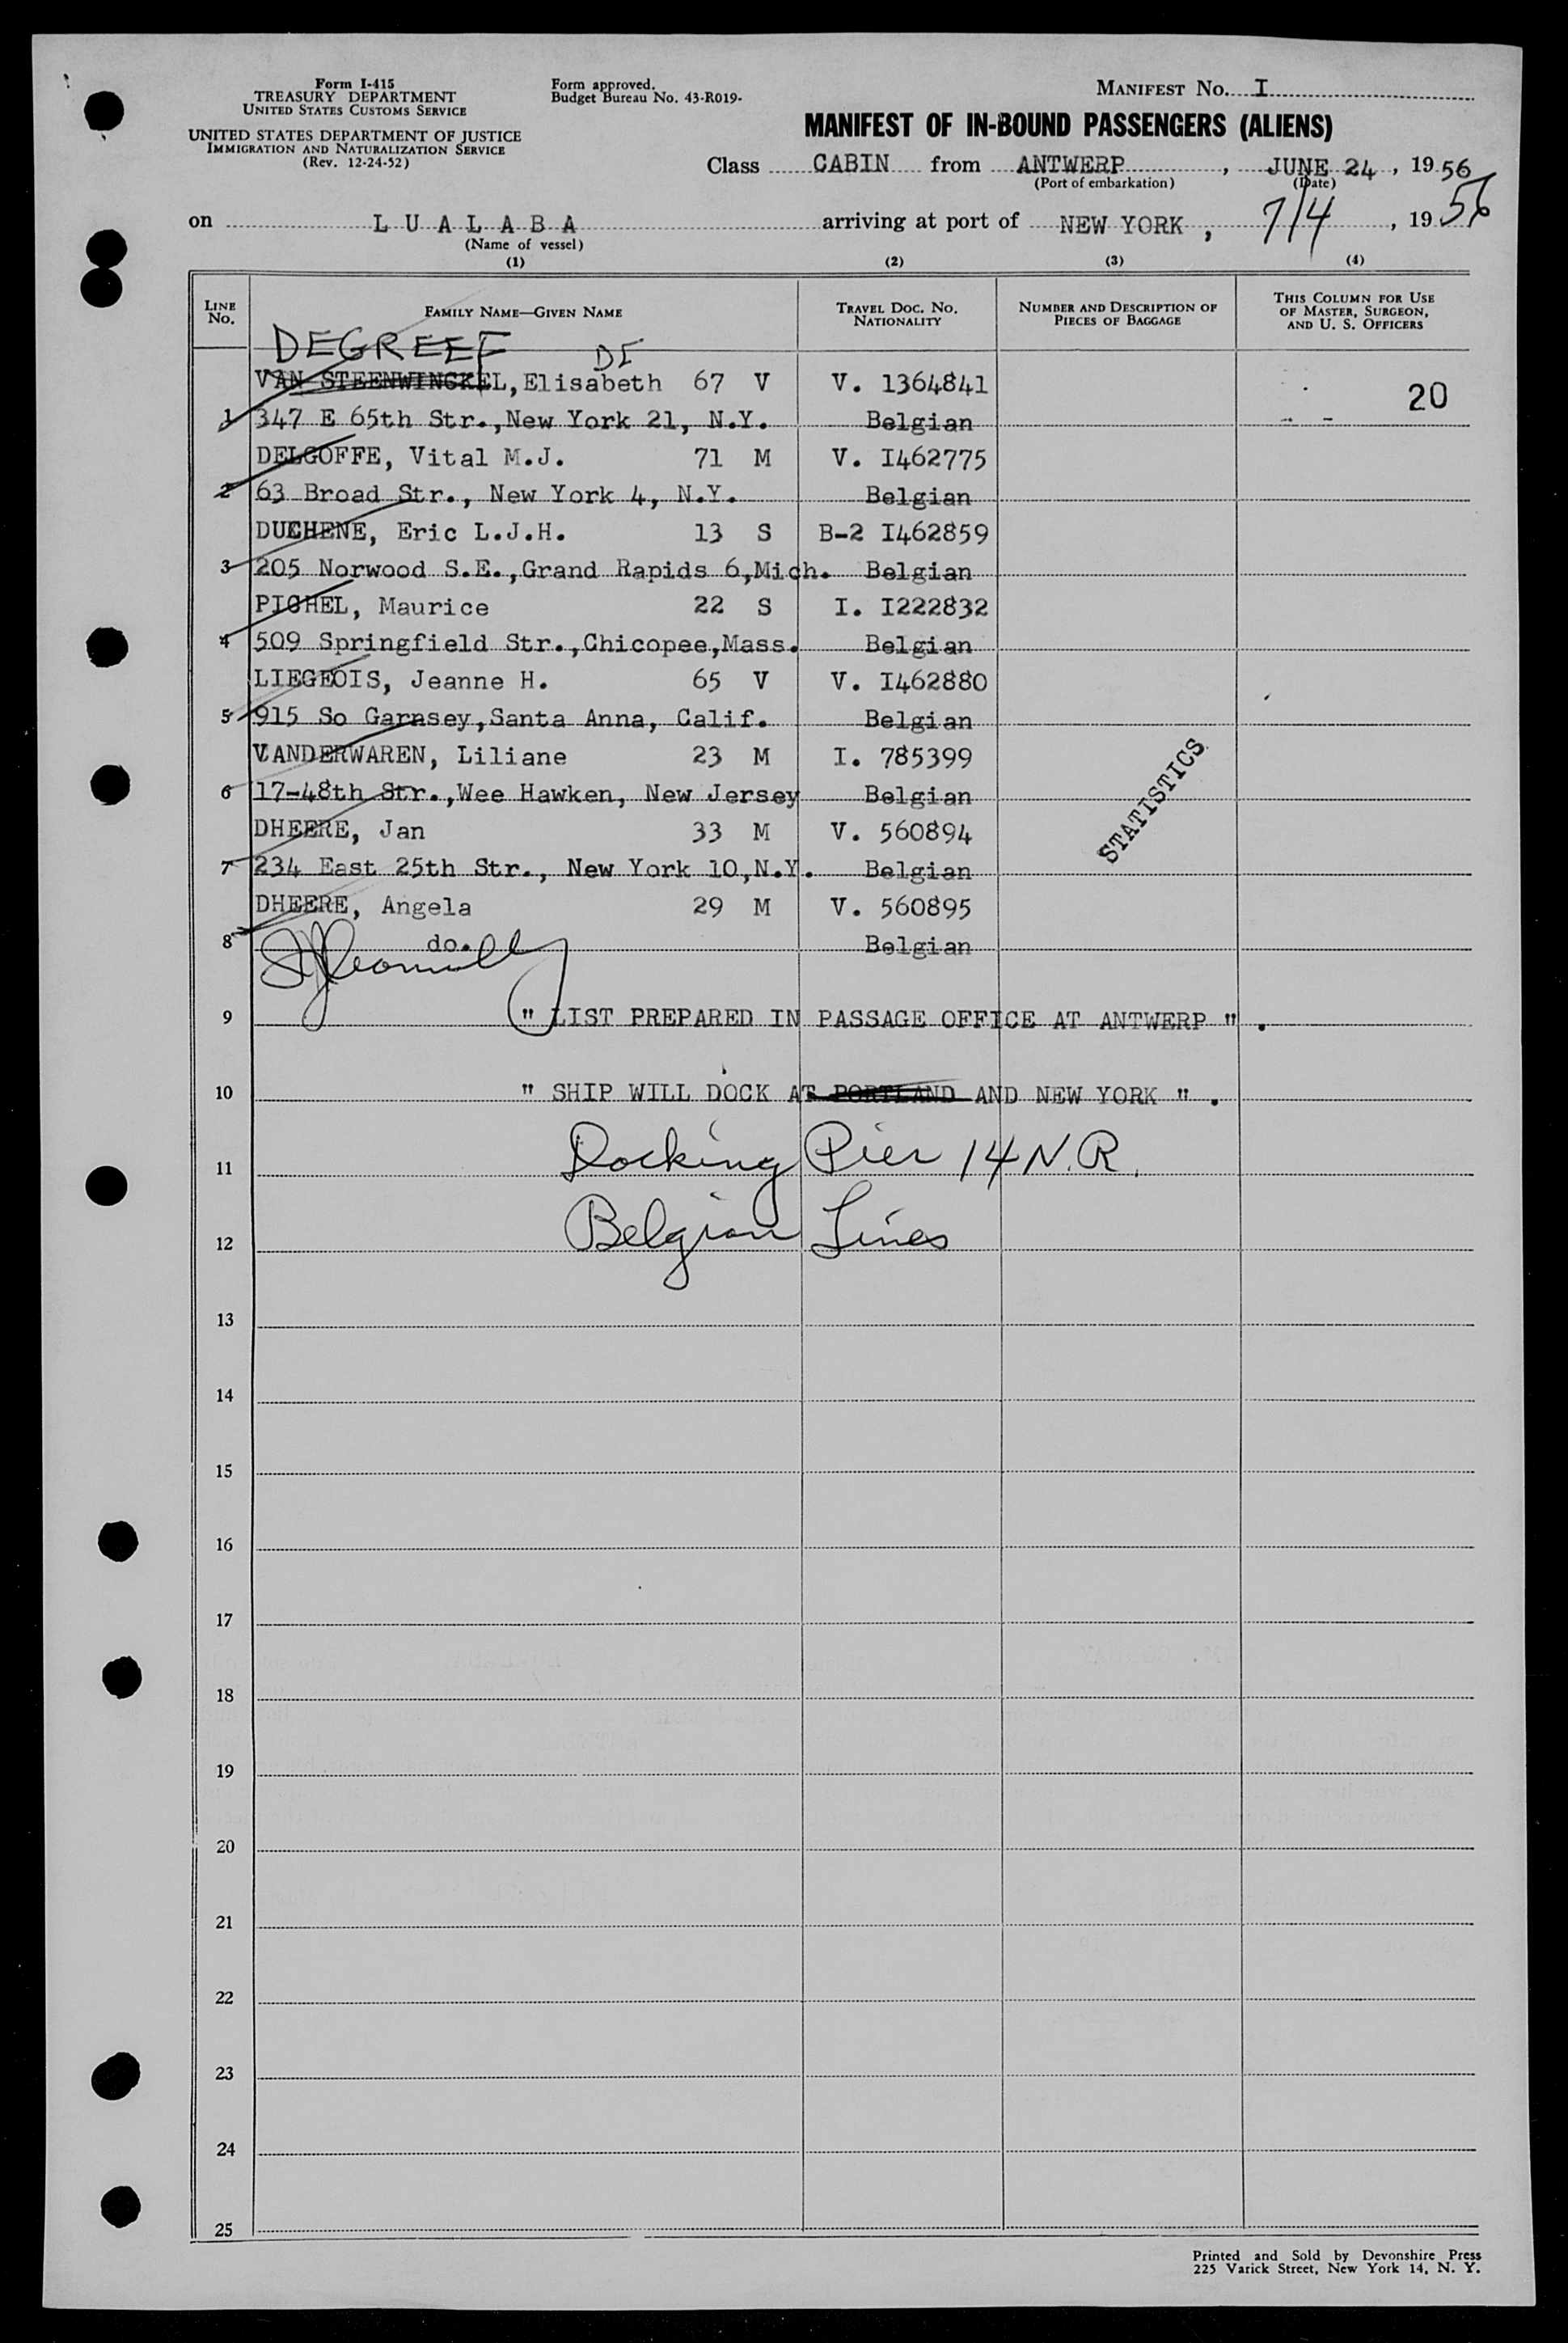 Form I-415
TREASURY DEPARTMENT
UNITED STATES CUSTOMS SERVICE
UNITED STATES DEPARTMENT OF JUSTICE
IMMIGRATION AND NATURALIZATION SERVICE
(Rev. 12-24-52)
Form approved.
Budget Bureau No. 43-R019-
MANIFEST NO. I
MANIFEST OF IN-BOUND PASSENGERS (ALIENS)
Class CABIN from ANTWERP, JUNE 24, 1956
(Port of embarkation) (Date)
on L U A L A B A arriving at port of NEW YORK, 7/4, 1956
(Name of vessel)
(1) (2) (3) (4)
LINE No. FAMILY NAME—GIVEN NAME TRAVEL DOC. NO. NATIONALITY NUMBER AND DESCRIPTION OF PIECES OF BAGGAGE THIS COLUMN FOR USE OF MASTER, SURGEON, AND U. S. OFFICERS
DEGREEF DE
VAN STEENWINCKEL, Elisabeth 67 V V. 1364841 20
1 347 E 65th Str., New York 21, N.Y. Belgian
DELGOFFE, Vital M.J. 71 M V. I462775
2 63 Broad Str., New York 4, N.Y. Belgian
DUCHENE, Eric L.J.H. 13 S B-2 I462859
3 205 Norwood S.E., Grand Rapids 6, Mich. Belgian
PICHEL, Maurice 22 S I. I222832
4 509 Springfield Str., Chicopee, Mass. Belgian
LIEGEOIS, Jeanne H. 65 V V. I462880
5 915 So Garnsey, Santa Anna, Calif. Belgian
VANDERWAREN, Liliane 23 M I. 785399
6 17-48th Str., Wee Hawken, New Jersey Belgian
DHEERE, Jan 33 M V. 560894
STATISTICS
7 234 East 25th Str., New York 10, N.Y. Belgian
DHEERE, Angela 29 M V. 560895
8 do. Belgian
9 " LIST PREPARED IN PASSAGE OFFICE AT ANTWERP " .
10 " SHIP WILL DOCK AT PORTLAND AND NEW YORK " .
11 Docking Pier 14 N.R.
12 Belgian Lines
13
14
15
16
17
18
19
20
21
22
23
24
25
Printed and Sold by Devonshire Press
225 Varick Street, New York 14, N. Y.